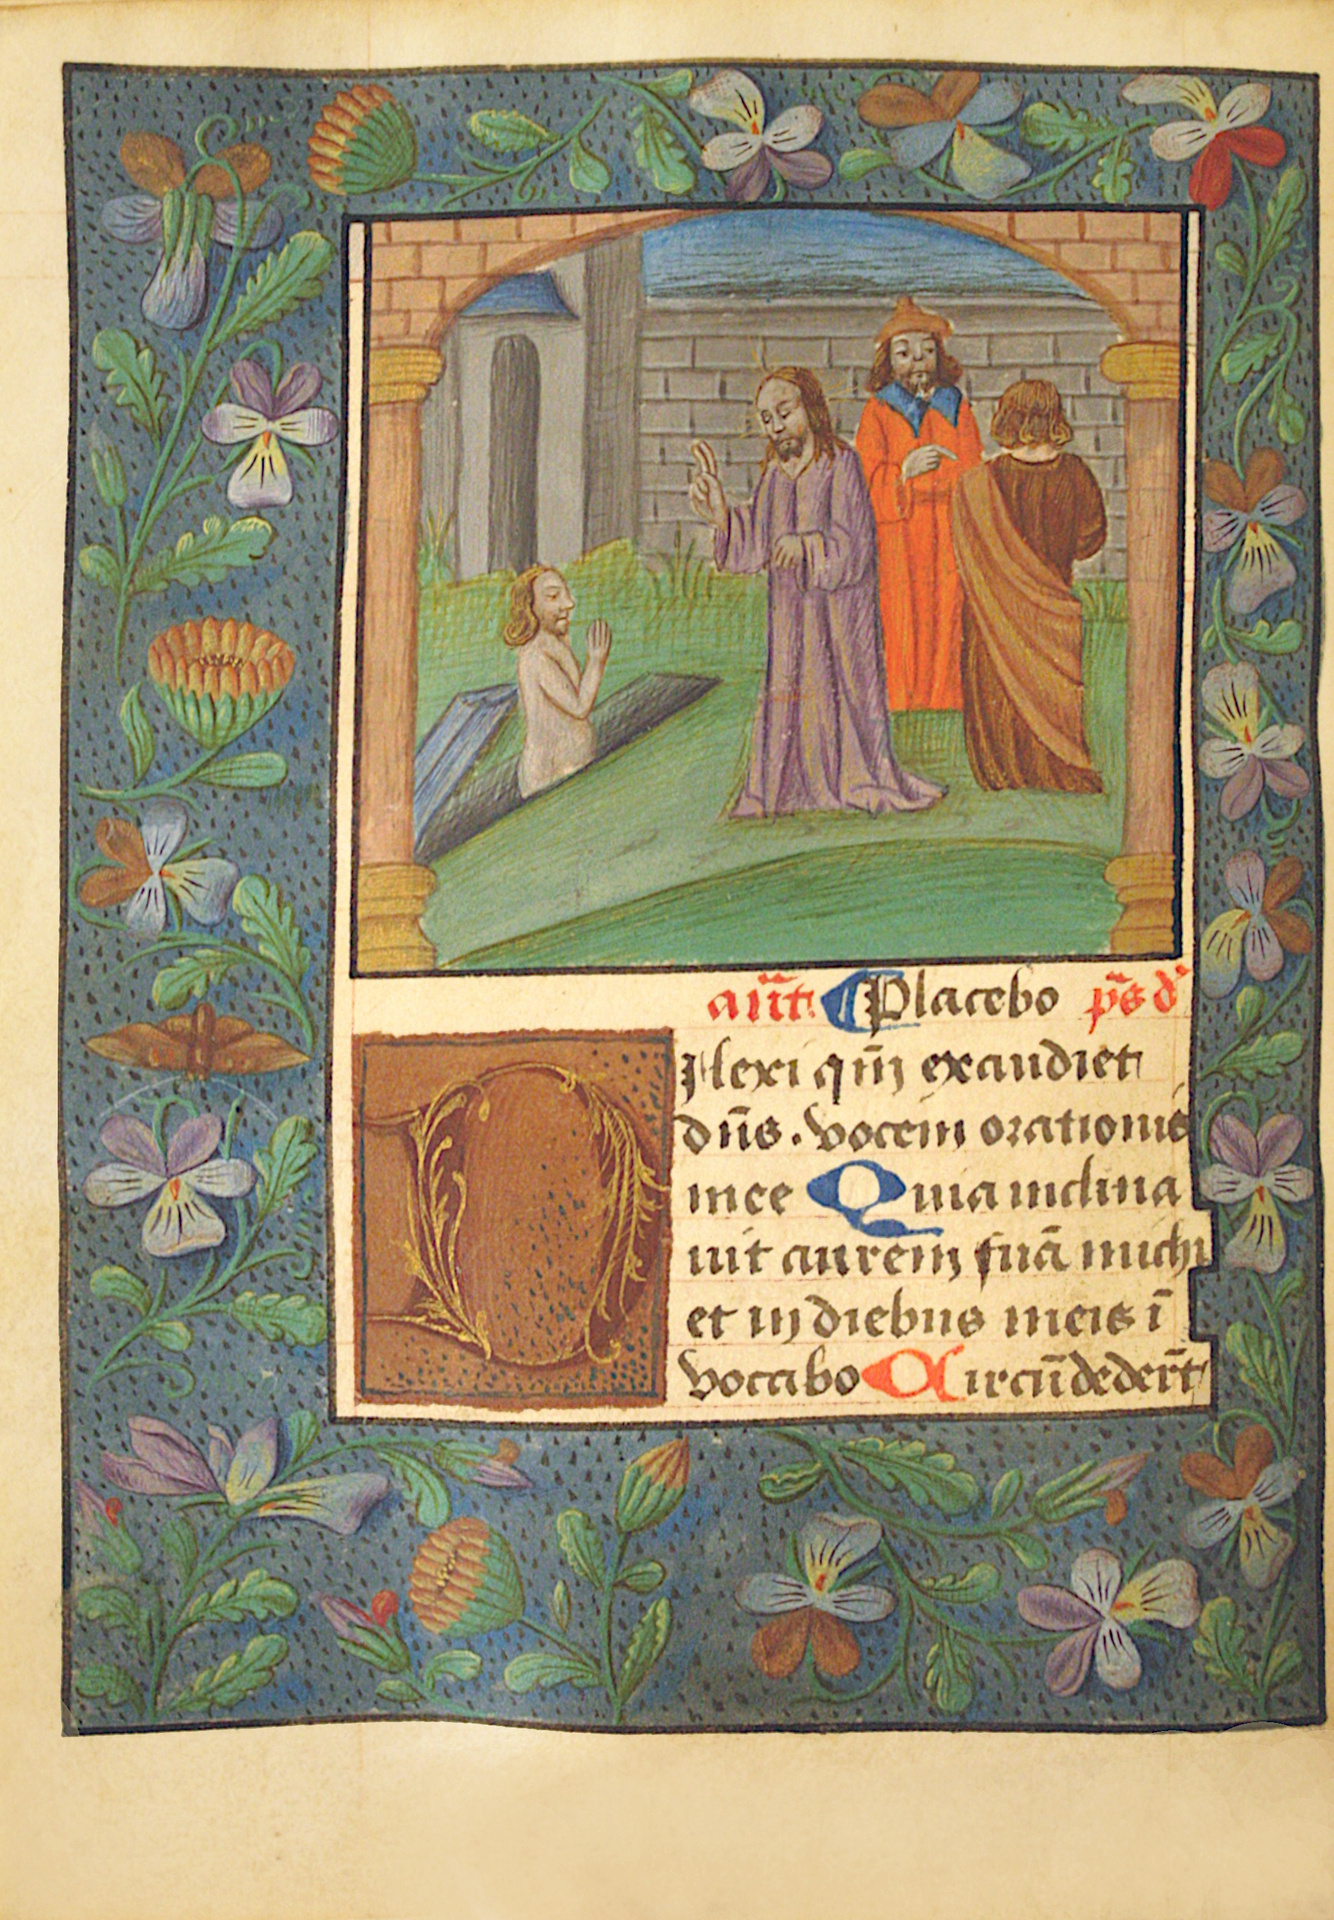 añt. Placebo p̄s d'
Dilexi qm̄ exaudiet
dn̄s . vocem orationis
mee Quia inclina
uit aurem suā michi
et in diebus meis ī
vocabo Circūdeder̄t